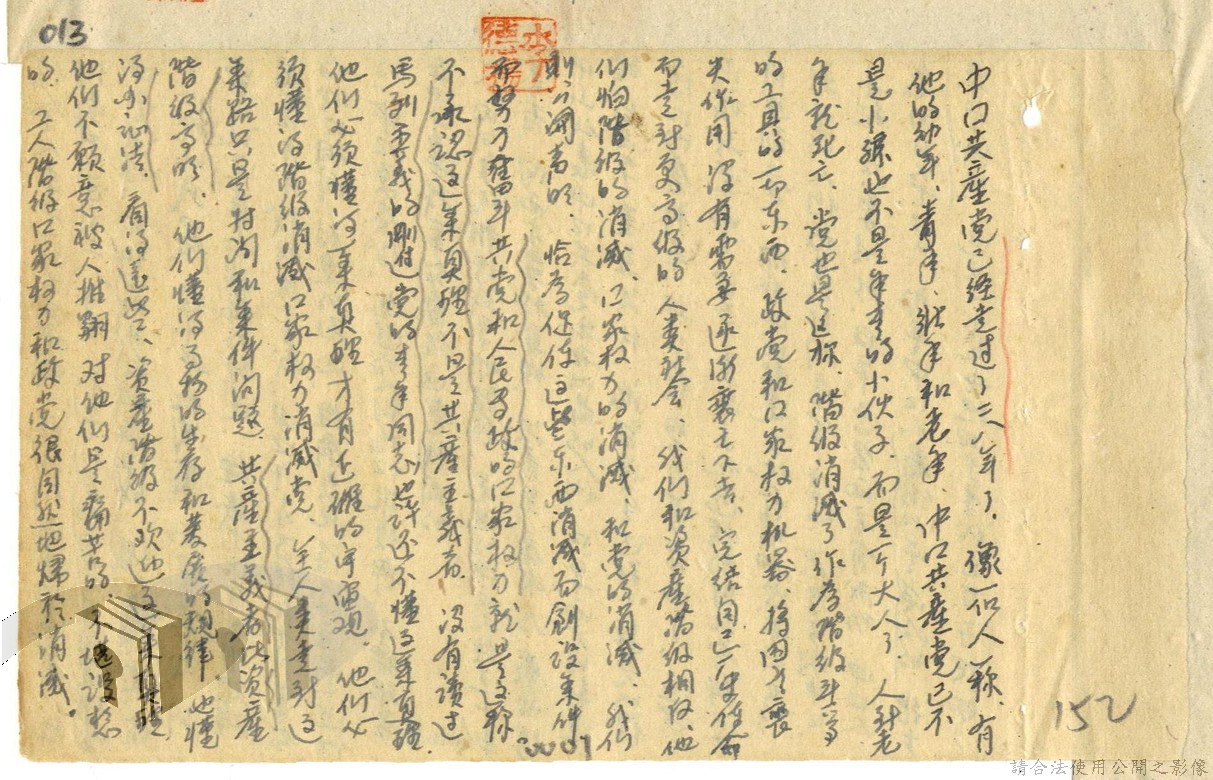 013
中囗共產党已経走过了二八年了，像一個人一称，有
他的幼年、青年、壮年和老年，中囗共產党已不
是小孩也不是年青的小伙子，而是个大人了。人到老
年就死亡，党也是这称，階级消滅了作為階级斗争
的工具的一切东西，政党和囗家权力机器，将因之喪
失作用没有需要逐漸衰亡下去，完结自己歴史使命
而走到更高级的人类社会，我們和資產階级相反，他
們怕階级的消滅，囗家权力的消滅，和党的消滅，我們
則公開声明，恰為促使这些东西消滅而創设条件
而努力奮斗共党和人民專政的囗家权力就是这称
不承認这条真理不是共產主義者，没有读过
馬列主義的剛進党的青年同志也許还不懂这条真理，
他們必须懂得这条真理才有正確的宇宙观，他們必
须懂得階级消滅囗家权力消滅党，全人类走到这
条路只是时间和条件问題，共產主義者比資產
階级高明，他們懂得事物的生存和发展的規律，他懂
得办証法，看得遠些，資產階级不欢迎这条真理
他們不願意被人推翻对他們是痛苦的，不堪设想
的，工人階级囗家权力和政党很自然地归於消滅。
152
請合法使用公開之影像